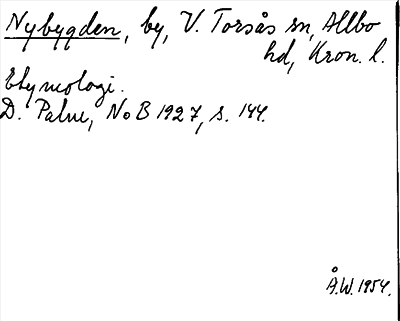 Nybygden, by, V. Torsås sn, Allbo
hd, Kron. l.
Etymologi.
D. Palm, NoB 1927, s. 144.
Å.W. 1954.